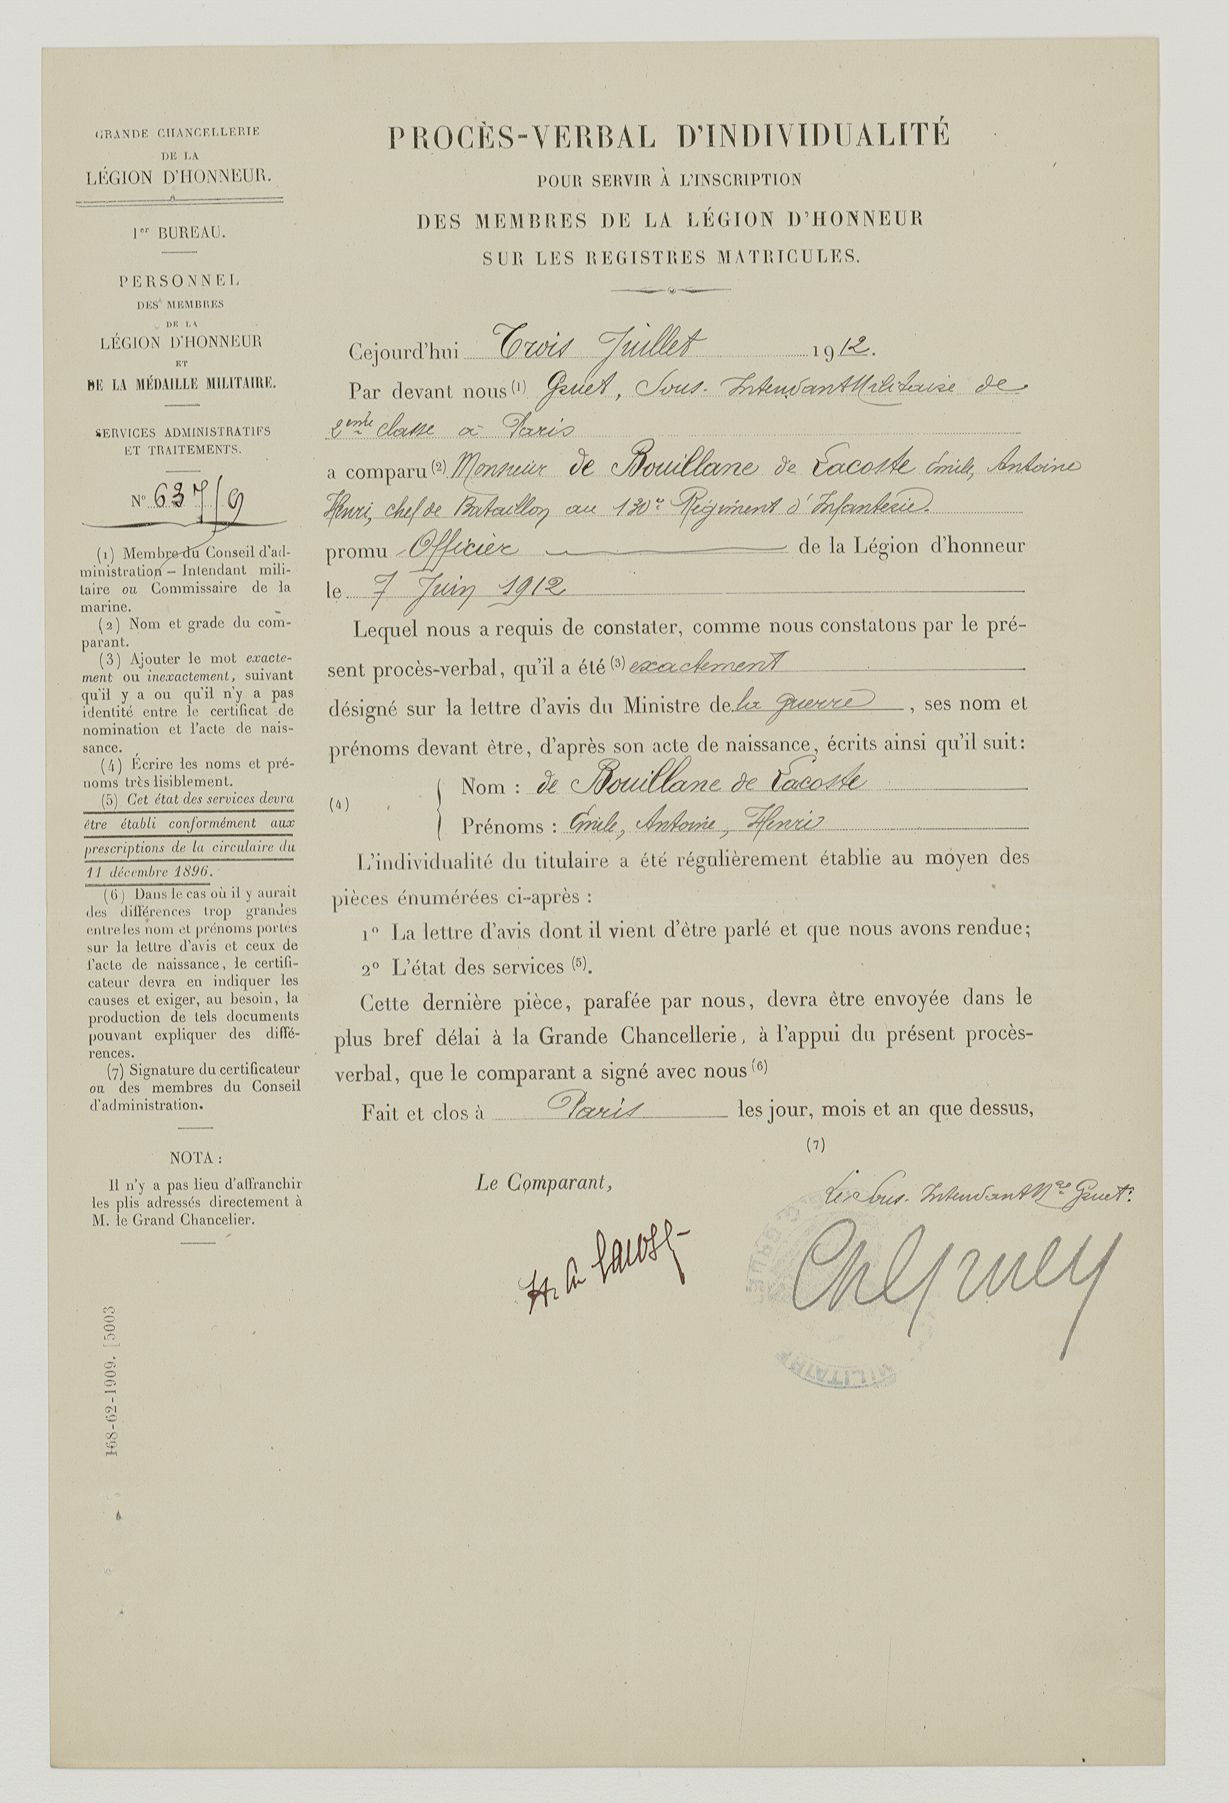 GRANDE CHANCELLERIE
DE LA
LÉGION D'HONNEUR.
1er BUREAU.
PERSONNEL
DES MEMBRES
DE LA
LÉGION D'HONNEUR
ET
DE LA MÉDAILLE MILITAIRE.
SERVICES ADMINISTRATIFS
ET TRAITEMENTS.
N° 637/9
(1) Membre du Conseil d'ad-
ministration — Intendant mili-
taire ou Commissaire de la
marine.
(2) Nom et grade du com-
parant.
(3) Ajouter le mot exacte-
ment ou inexactement, suivant
qu'il y a ou qu'il n'y a pas
identité entre le certificat de
nomination et l'acte de nais-
sance.
(4) Écrire les noms et pré-
noms très lisiblement.
(5) Cet état des services devra
être établi conformément aux
prescriptions de la circulaire du
11 décembre 1896.
(6) Dans le cas où il y aurait
des différences trop grandes
entre les nom et prénoms portés
sur la lettre d'avis et ceux de
l'acte de naissance, le certifi-
cateur devra en indiquer les
causes et exiger, au besoin, la
production de tels documents
pouvant expliquer des diffé-
rences.
(7) Signature du certificateur
ou des membres du Conseil
d'administration.
NOTA :
Il n'y a pas lieu d'affranchir
les plis adressés directement à
M. le Grand Chancelier.
168-62-1909. [5003
PROCÈS-VERBAL D'INDIVIDUALITÉ
POUR SERVIR À L'INSCRIPTION
DES MEMBRES DE LA LÉGION D'HONNEUR
SUR LES REGISTRES MATRICULES.
Cejourd'hui Trois Juillet 1912.
Par devant nous (1) Gruet, Sous-Intendant Militaire de
2ème classe à Paris
a comparu (2) Monsieur de Bouillane de Lacoste Émile, Antoine
Henri, chef de Bataillon au 130e Régiment d'Infanterie.
promu Officier de la Légion d'honneur
le 7 Juin 1912
Lequel nous a requis de constater, comme nous constatons par le pré-
sent procès-verbal, qu'il a été (3) exactement
désigné sur la lettre d'avis du Ministre de la guerre, ses nom et
prénoms devant être, d'après son acte de naissance, écrits ainsi qu'il suit :
(4) Nom : de Bouillane de Lacoste
Prénoms : Émile, Antoine, Henri
L'individualité du titulaire a été régulièrement établie au moyen des
pièces énumérées ci-après :
1° La lettre d'avis dont il vient d'être parlé et que nous avons rendue ;
2° L'état des services (5).
Cette dernière pièce, parafée par nous, devra être envoyée dans le
plus bref délai à la Grande Chancellerie, à l'appui du présent procès-
verbal, que le comparant a signé avec nous (6)
Fait et clos à Paris les jour, mois et an que dessus,
(7)
Le Comparant,
Le Sous-Intendant Mre Gruet.
H. de Lacoste
MILITAIRE